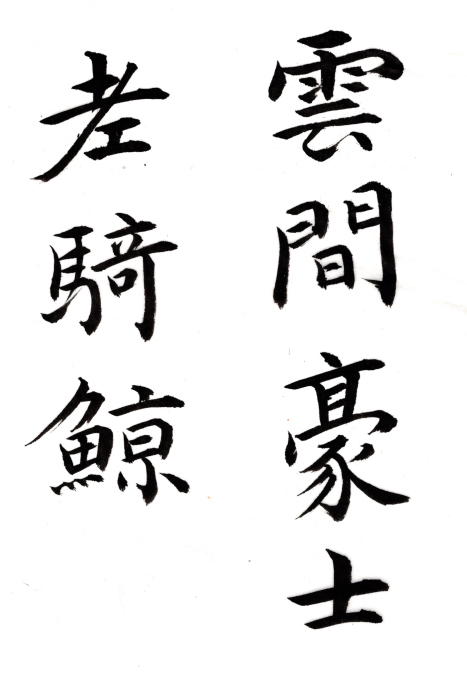 雲間豪士
老騎鯨